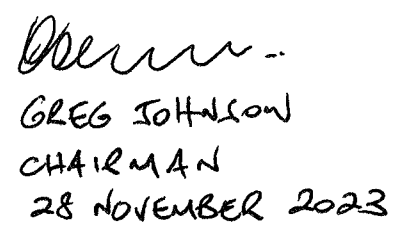 GREG JOHNSON
CHAIRMAN
28 NOVEMBER 2023